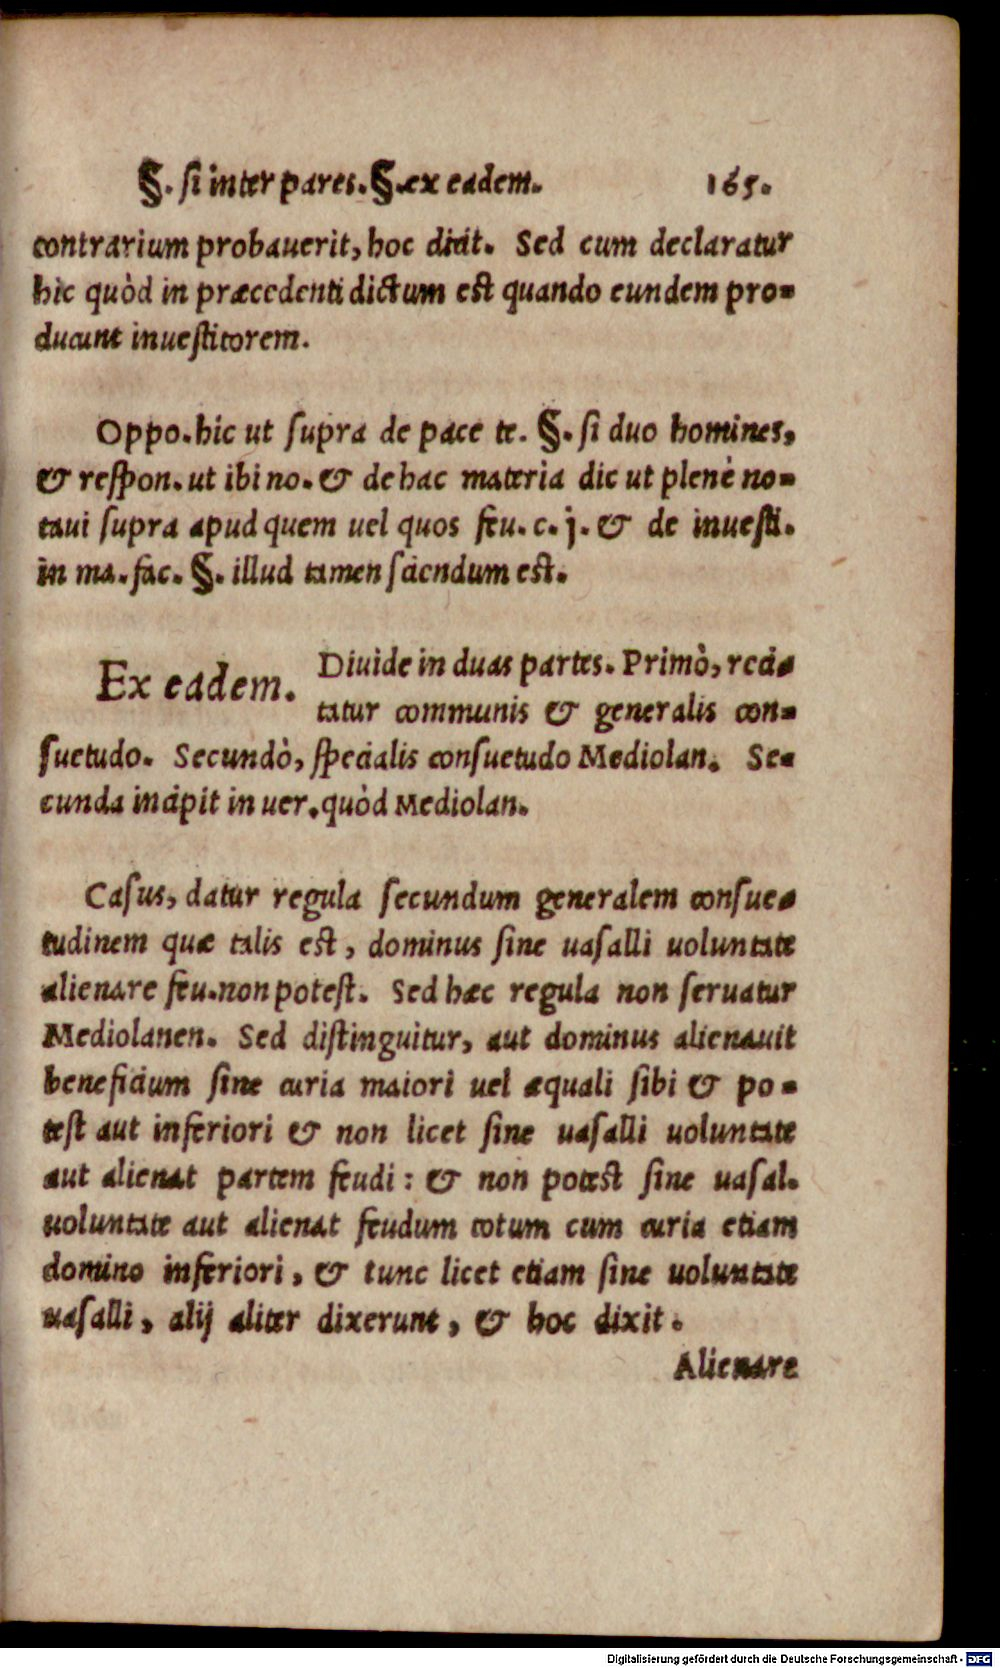 §. ſi inter pares. §. ex eadem. 165.
contrarium probauerit, hoc dicit. Sed cum declaratur
hic quòd in præcedenti dictum est quando eundem pro-
ducunt inueſtitorem.
Oppo. hic ut ſupra de pace te. §. ſi duo homines,
& reſpon. ut ibi no. & de hac materia dic ut plenè no-
taui ſupra apud quem uel quos feu. c. j. & de inueſti.
in ma. fac. §. illud tamen ſciendum est.
Ex eadem. Diuide in duas partes. Primò, reci-
tatur communis & generalis con-
ſuetudo. Secundò, ſpecialis conſuetudo Mediolan. Se-
cunda incipit in uer. quòd Mediolan.
Caſus, datur regula ſecundum generalem conſue-
tudinem quæ talis est, dominus ſine uaſalli uoluntate
alienare feu. non poteſt. Sed hæc regula non ſeruatur
Mediolanen. Sed diſtinguitur, aut dominus alienauit
beneficium ſine curia maiori uel æquali ſibi & po-
teſt aut inferiori & non licet ſine uaſalli uoluntate
aut alienat partem feudi: & non potest ſine uaſal.
uoluntate aut alienat feudum totum cum curia etiam
domino inferiori, & tunc licet etiam ſine uoluntate
uaſalli, alij aliter dixerunt, & hoc dixit.
Alienare
Digitalisierung gefördert durch die Deutsche Forschungsgemeinschaft - DFG